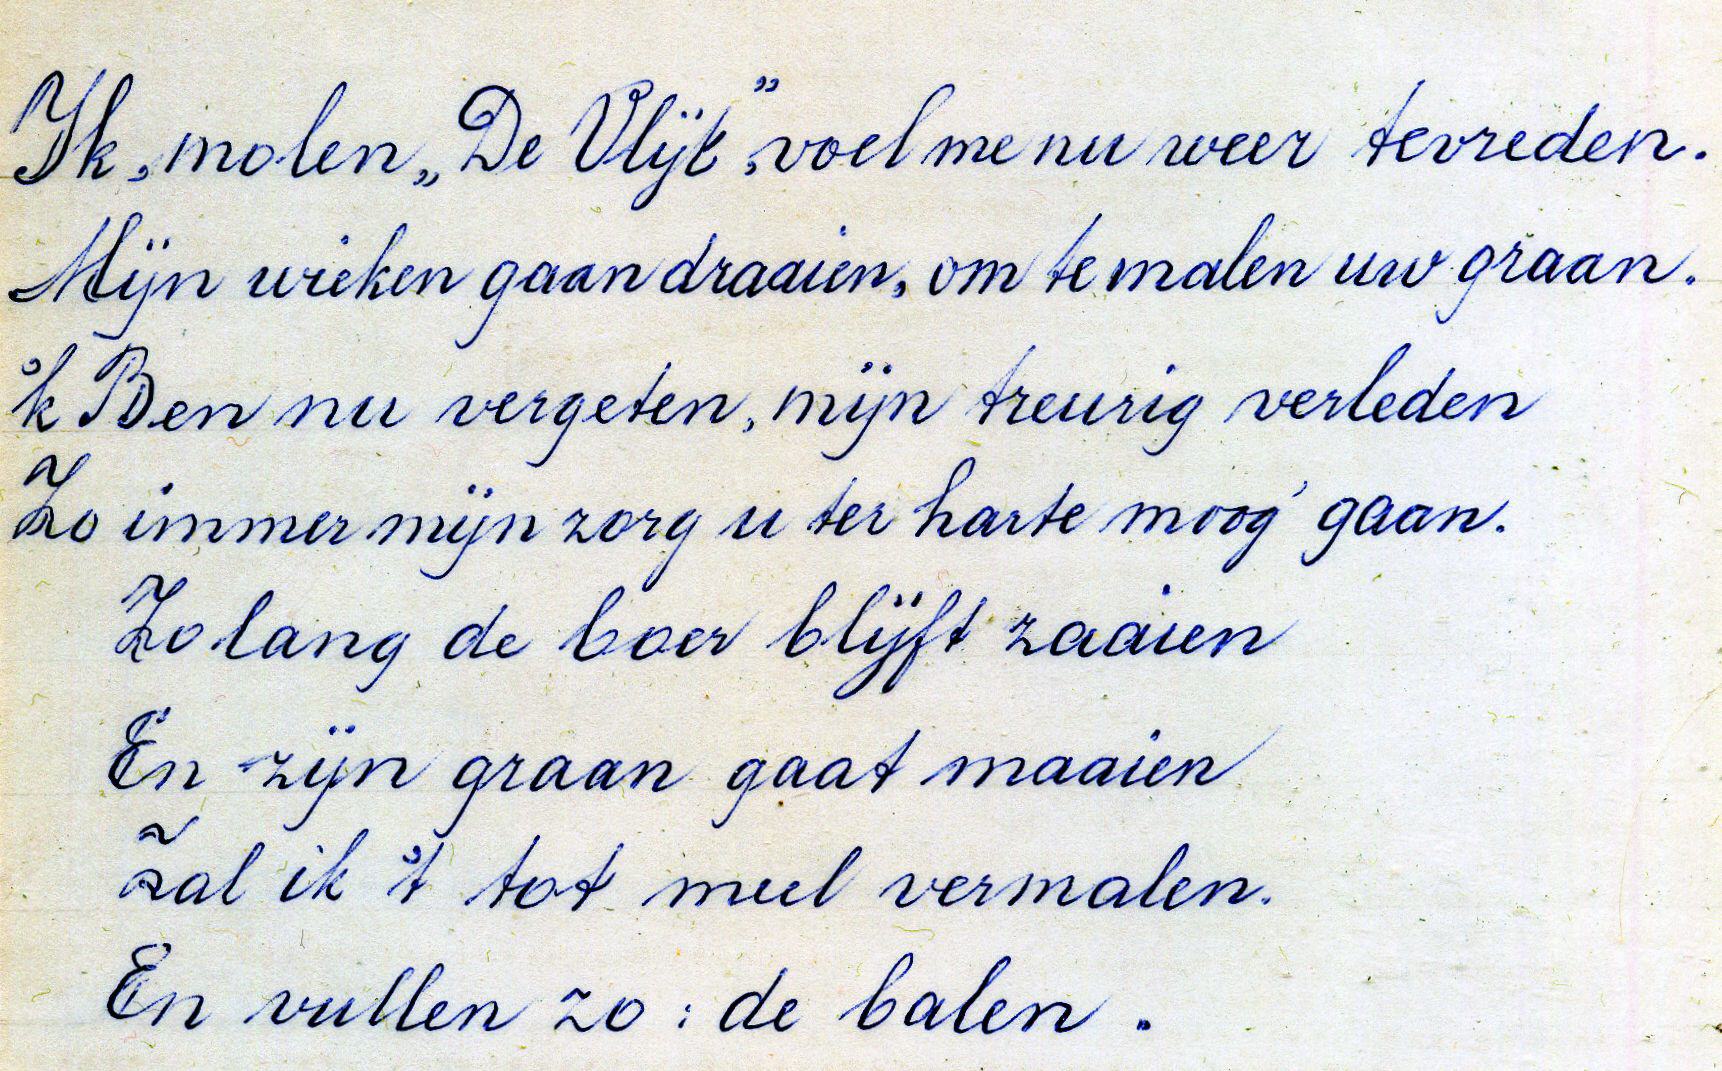 Ik, molen „De Vlijt”, voel me nu weer tevreden.
Mijn wieken gaan draaien, om te malen uw graan.
'k Ben nu vergeten, mijn treurig verleden
Zo immer mijn zorg u ter harte moog' gaan.
Zo lang de boer blijft zaaien
En zijn graan gaat maaien
Zal ik 't tot meel vermalen.
En vullen zo : de balen .